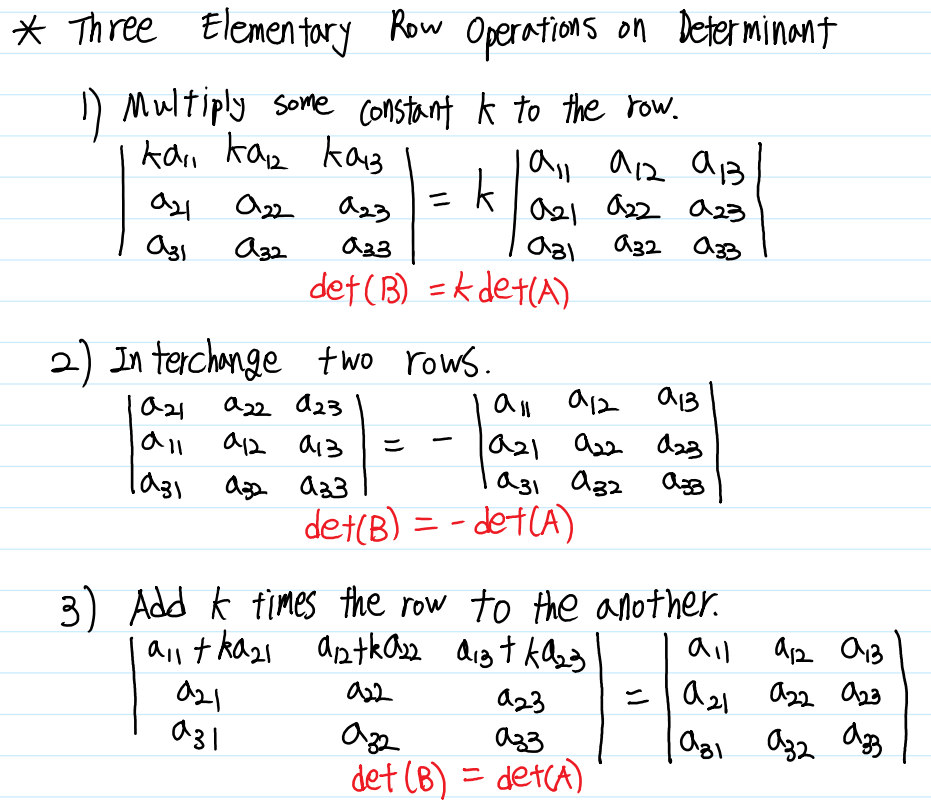 * Three Elementary Row Operations on Determinant
1) Multiply some constant k to the row.
| ka₁₁ ka₁₂ ka₁₃ | | a₁₁ a₁₂ a₁₃ |
| a₂₁ a₂₂ a₂₃ | = k | a₂₁ a₂₂ a₂₃ |
| a₃₁ a₃₂ a₃₃ | | a₃₁ a₃₂ a₃₃ |
det(B) = k det(A)
2) Interchange two rows.
| a₂₁ a₂₂ a₂₃ | | a₁₁ a₁₂ a₁₃ |
| a₁₁ a₁₂ a₁₃ | = - | a₂₁ a₂₂ a₂₃ |
| a₃₁ a₃₂ a₃₃ | | a₃₁ a₃₂ a₃₃ |
det(B) = - det(A)
3) Add k times the row to the another.
| a₁₁ + ka₂₁ a₁₂+ka₂₂ a₁₃ + ka₂₃ | | a₁₁ a₁₂ a₁₃ |
| a₂₁ a₂₂ a₂₃ | = | a₂₁ a₂₂ a₂₃ |
| a₃₁ a₃₂ a₃₃ | | a₃₁ a₃₂ a₃₃ |
det(B) = det(A)